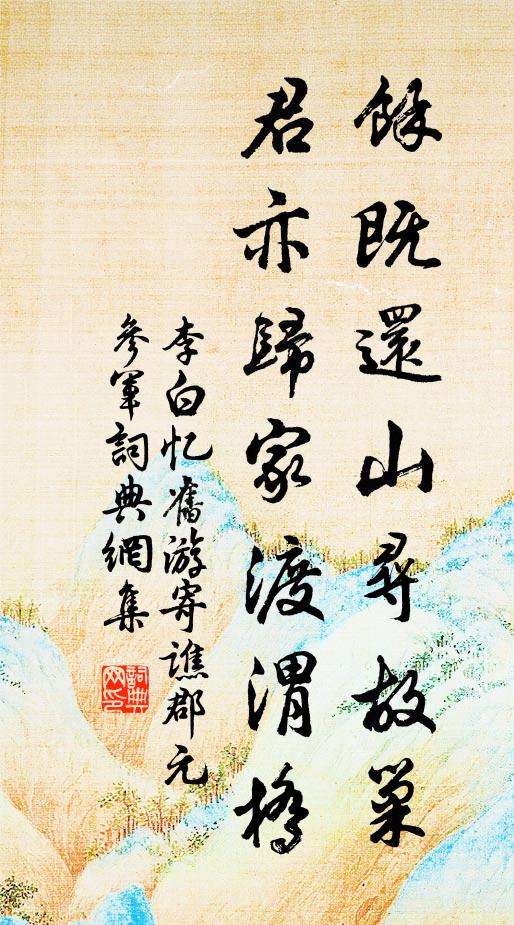 餘既還山尋故巢
君亦歸家渡渭橋
李白忆舊游寄譙郡元
參軍詞典網集
詞典
网印